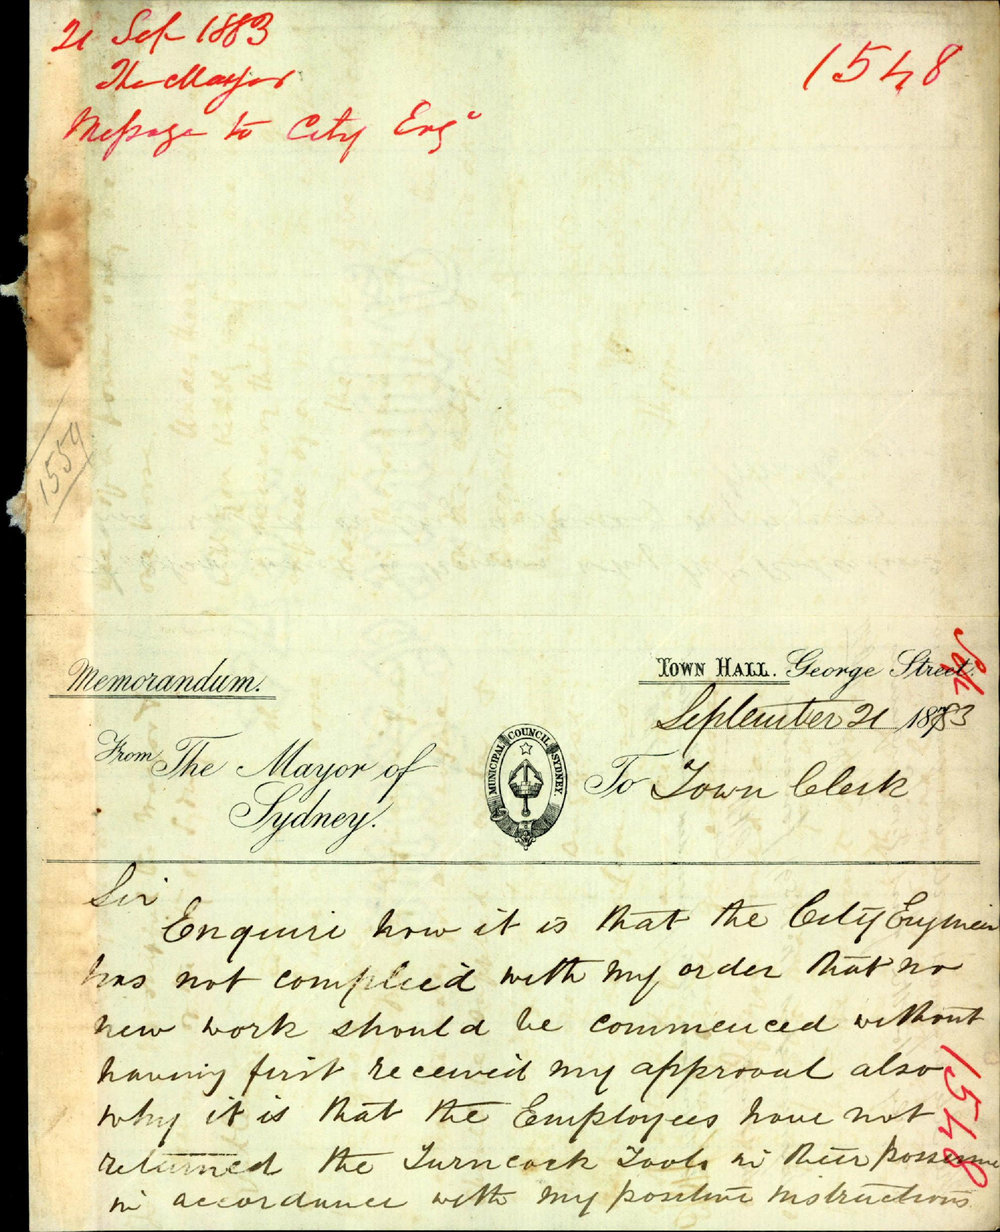 21 Sep 1883
The Mayor
Message to City Engr
1548
1559
Memorandum.
TOWN HALL. George Street.
September 21 1883
From The Mayor of
Sydney.
MUNICIPAL COUNCIL SYDNEY.
To Town Clerk
Sir
Enquire how it is that the City Engineer
has not complied with my order that no
new work should be commenced without
having first received my approval also
why it is that the Employees have not
returned the Turncock Tools in their possession
in accordance with my positive instructions
1548